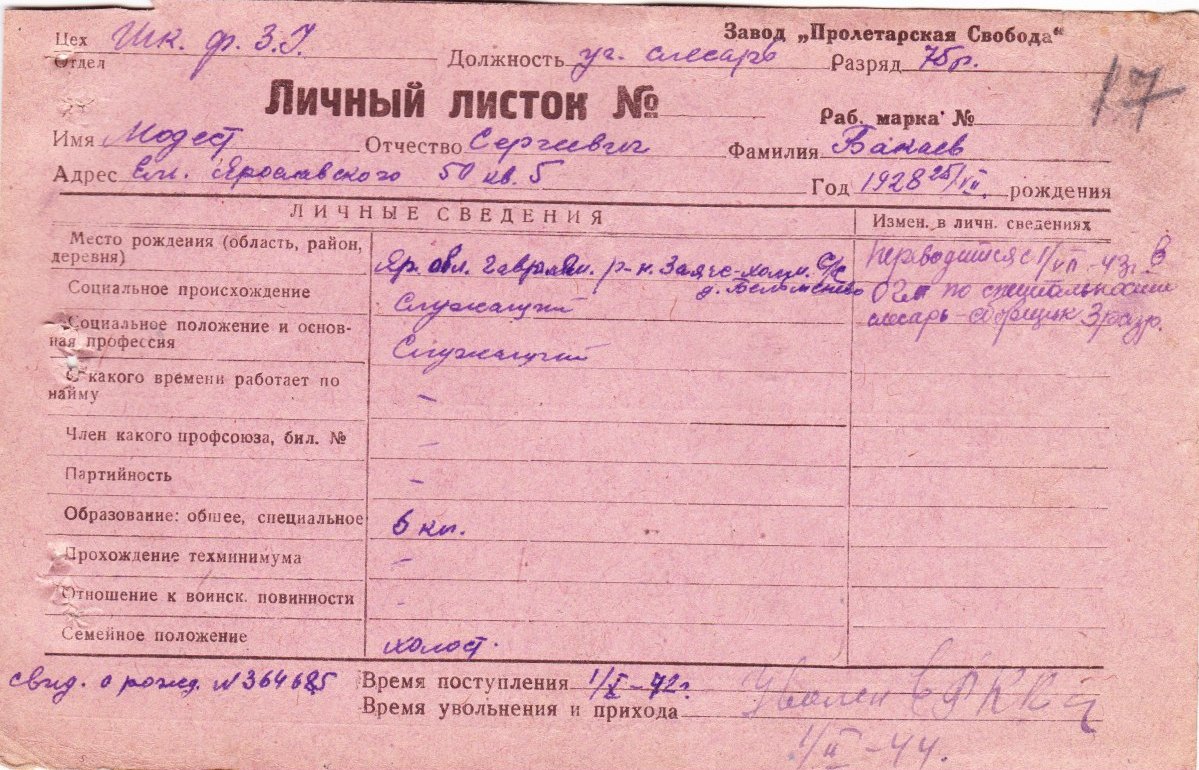 Завод „Пролетарская Свобода“
Цех Шк. ф.З.У.
Отдел
Должность уч. слесарь Разряд 75р.
17
Личный листок №
Раб. марка № 
Имя Модест Отчество Сергеевич Фамилия
Адрес Ем. Ярославского 50 кв. 5 Год 1928 25/VII. рождения
ЛИЧНЫЕ СВЕДЕНИЯ Измен. в личн. сведениях
Место рождения (область, район, деревня) Яр. обл. Гаврилям. р-н. Заяче-холм. С/с д.
Переводится с 1/VII-43г. в
Социальное происхождение Служащий
ОГМ по специальности
слесарь-сборщик 3 разр.
Социальное положение и основ-
ная профессия Служащий
С какого времени работает по
найму –
Член какого профсоюза, бил. № –
Партийность –
Образование: общее, специальное 6 кл.
Прохождение техминимума –
Отношение к воинск. повинности –
Семейное положение холост.
свид. о рожд. № Время поступления 1/X-42г.
Время увольнения и прихода Уволен в РККА
1/II-44.